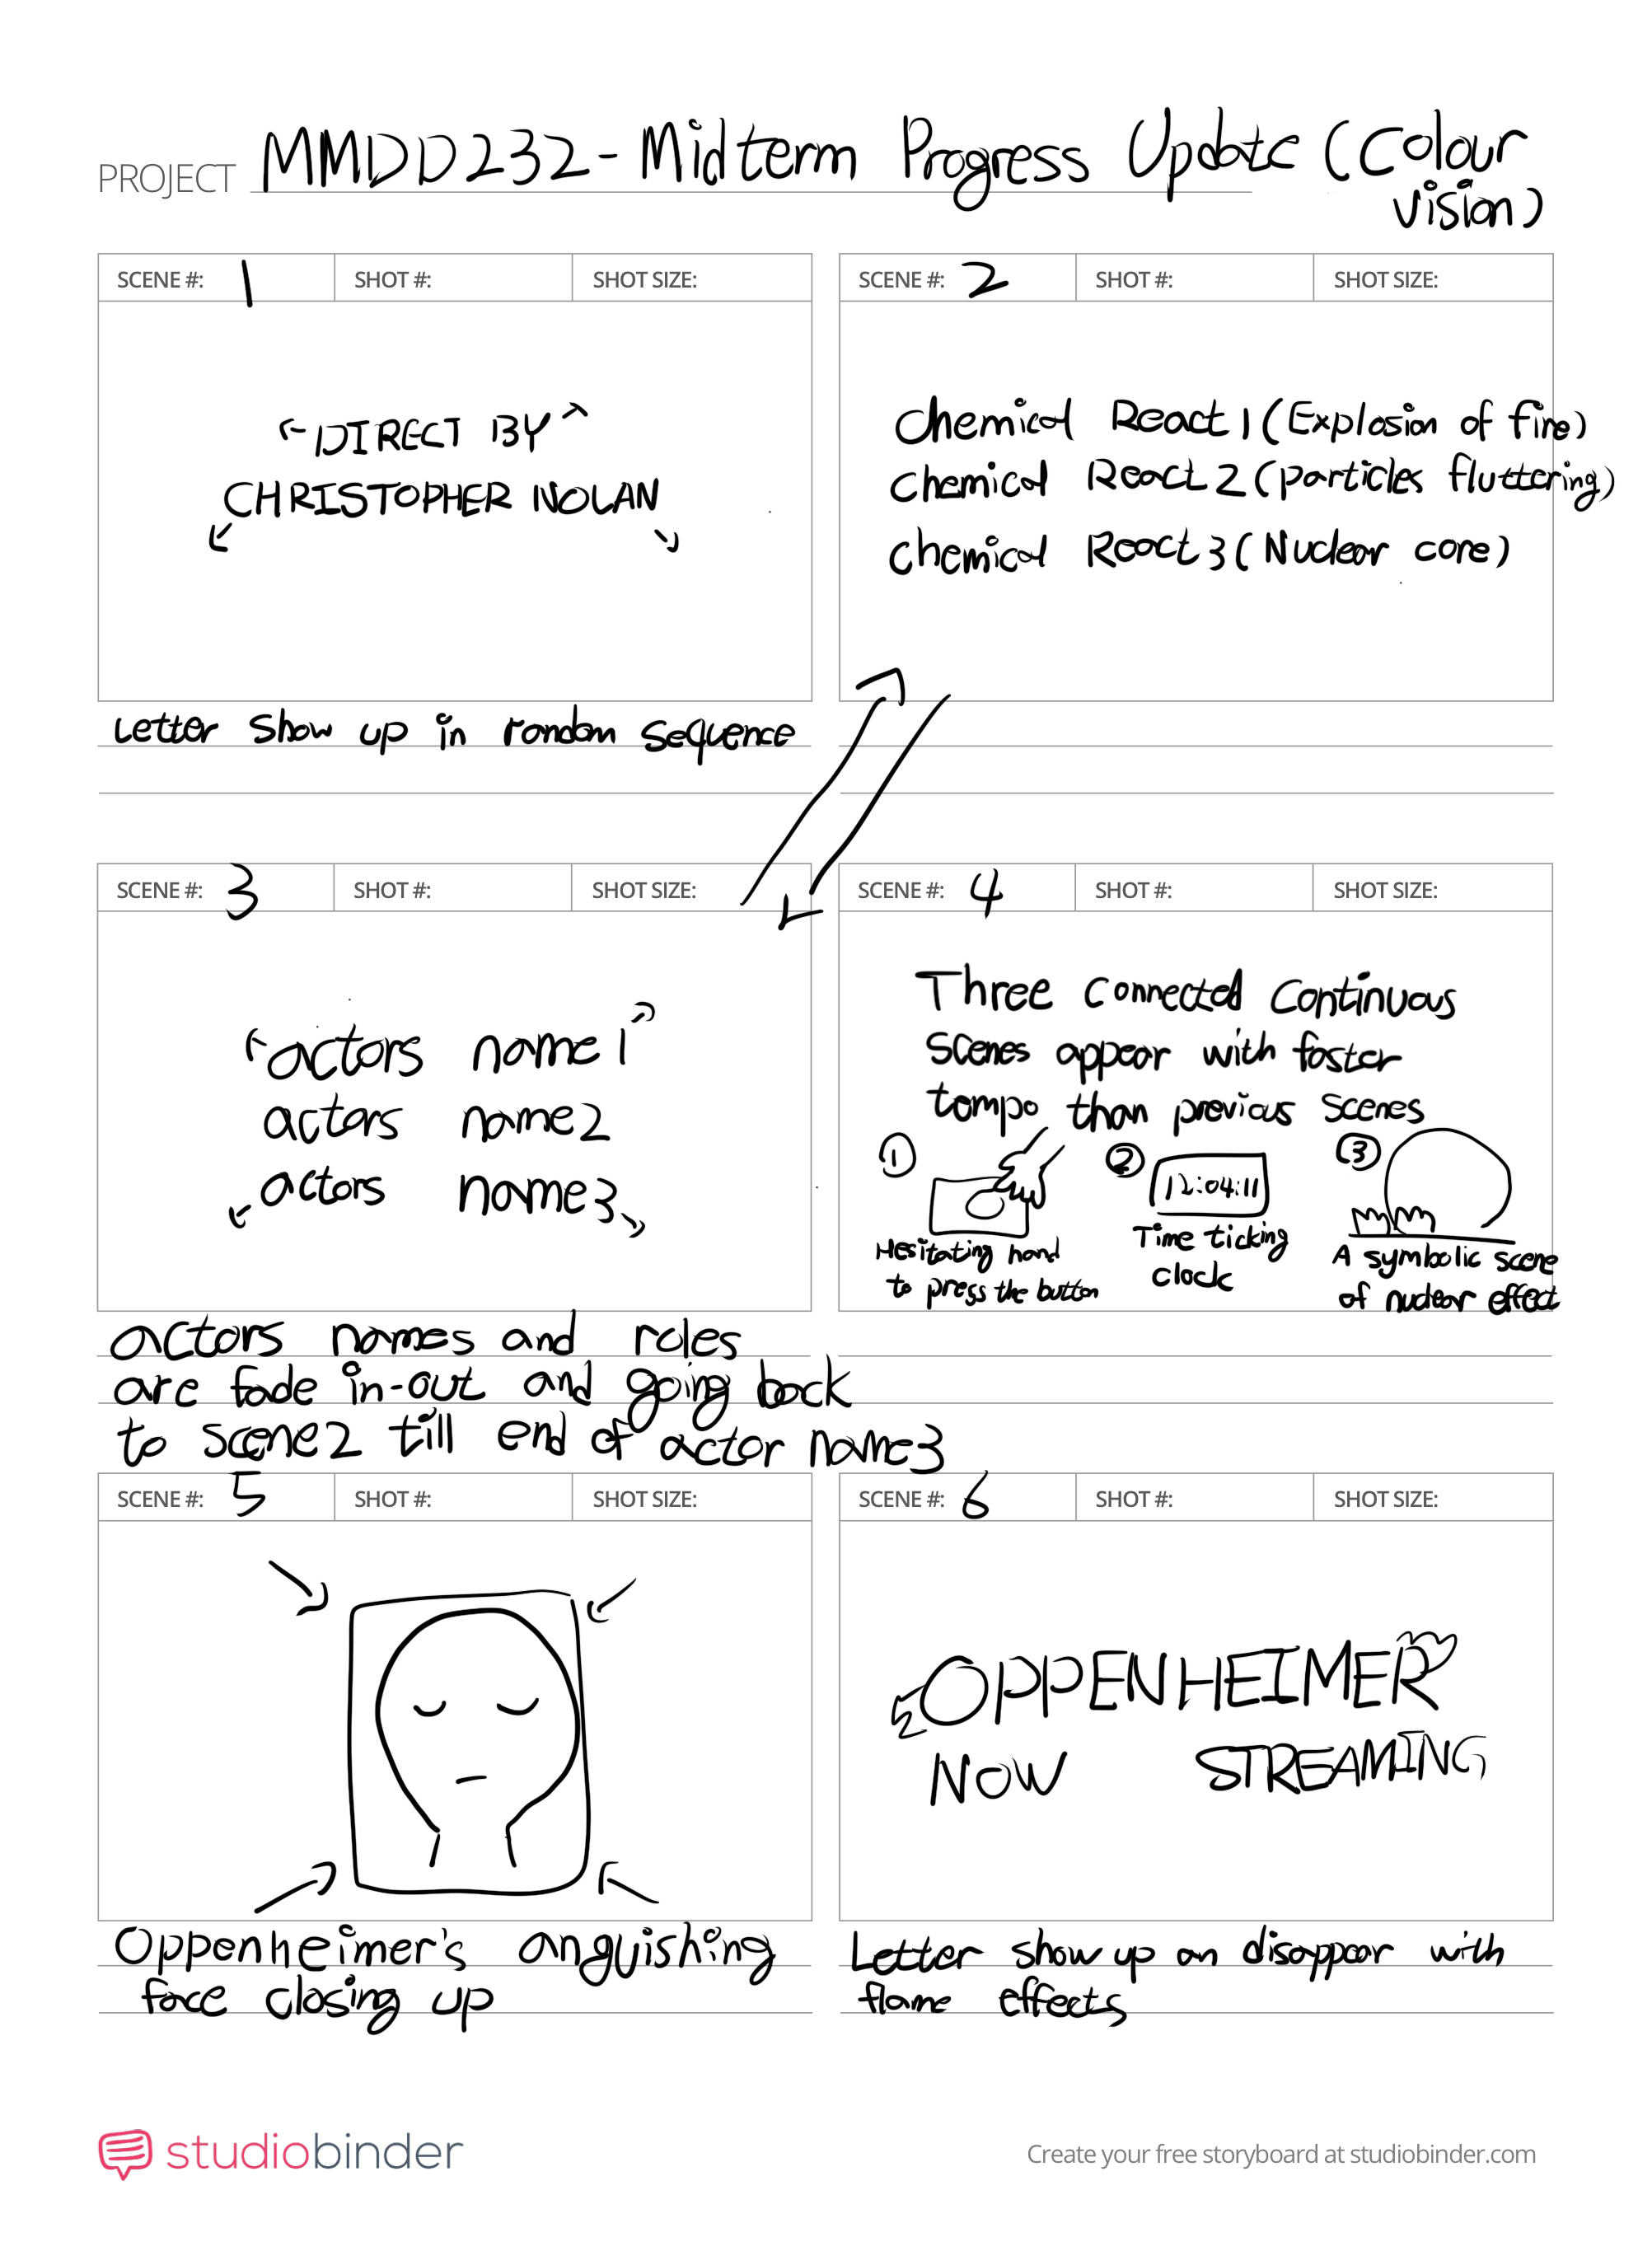 PROJECT MMDD232-Midterm Progress Update (Colour
vision)
SCENE #: 1 SHOT #: SHOT SIZE:
DIRECT BY
CHRISTOPHER NOLAN
Letter show up in random sequence
SCENE #: 2 SHOT #: SHOT SIZE:
Chemical React 1 (Explosion of fire)
Chemical React 2 (particles fluttering)
Chemical React 3 (Nuclear core)
SCENE #: 3 SHOT #: SHOT SIZE:
actors name 1
actors name2
actors name3
actors names and roles
are fade in-out and going back
to scene2 till end of actor name3
SCENE #: 4 SHOT #: SHOT SIZE:
Three connected continuous
scenes appear with faster
tompo than previous scenes
1
Hesitating hand
to press the button
2
12:04:11
Time ticking
clock
3
A symbolic scene
of nuclear effect
SCENE #: 5 SHOT #: SHOT SIZE:
Oppenheimer's anguishing
face closing up
SCENE #: 6 SHOT #: SHOT SIZE:
OPPENHEIMER
NOW STREAMING
Letter show up an disappear with
flame effects
studiobinder
Create your free storyboard at studiobinder.com